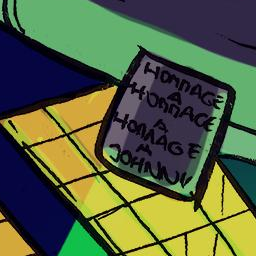 HOMMAGE
A
HOMMAGE
A
HOMAGE
A
JOHNNY